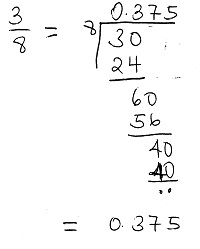 3/8 = 0.375
8 30
24
60
56
40
40
..
= 0.375